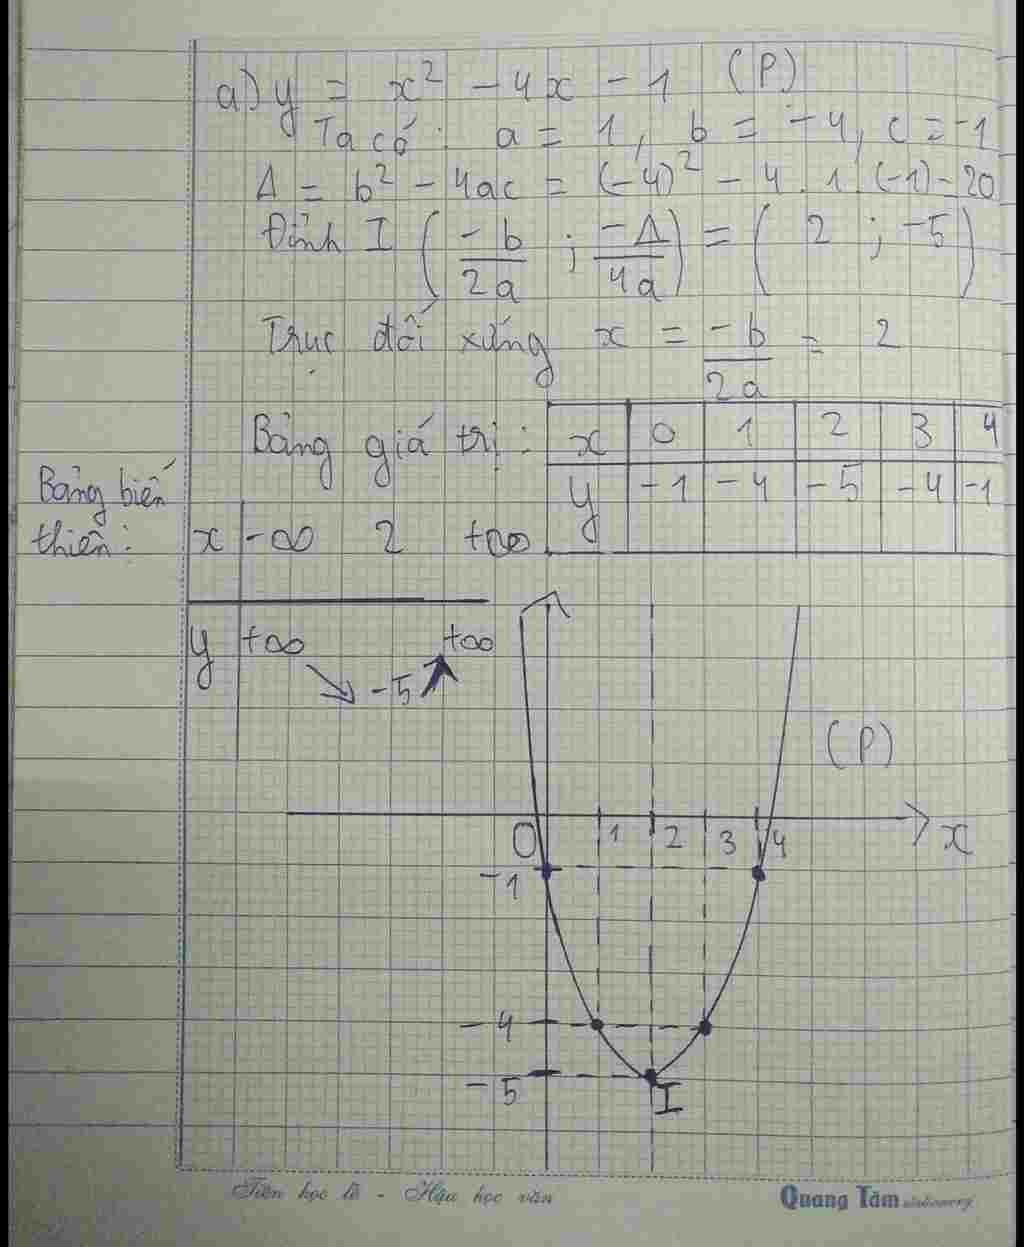 a) y = x² - 4x - 1 (P)
Ta có: a = 1, b = -4, c = -1
Δ = b² - 4ac = (-4)² - 4.1.(-1) - 20
Đỉnh I (-b/2a ; -Δ/4a) = (2 ; -5)
Trục đối xứng x = -b/2a = 2
Bảng giá trị: x 0 1 2 3 4
y -1 -4 -5 -4 -1
Bảng biến
thiên:
x -∞ 2 +∞
y +∞ -5 +∞
(P)
O 1 2 3 4 x
-1
-4
-5
I
Tiên học lễ - Hậu học văn
Quang Tâm stationery